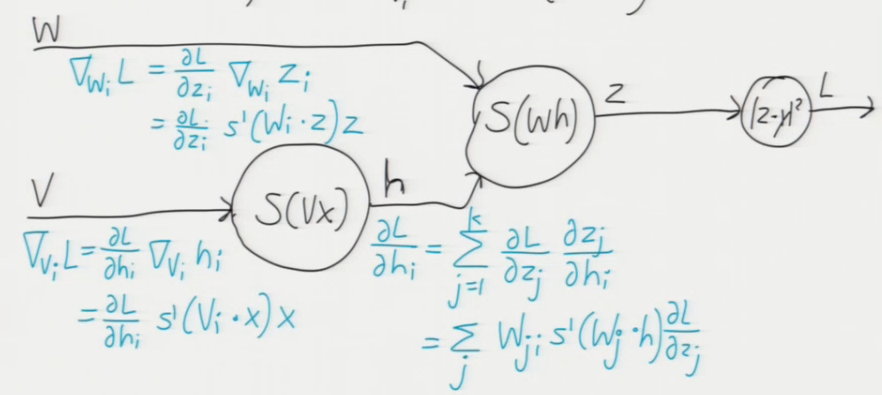 W
∇_{W_i} L = ∂L/∂z_i ∇_{W_i} z_i
= ∂L/∂z_i s'(W_i · z) z
S(Wh)
z
|z-y|²
L
V
S(Vx)
h
∇_{V_i} L = ∂L/∂h_i ∇_{V_i} h_i
= ∂L/∂h_i s'(V_i · x) x
∂L/∂h_i = ∑_{j=1}^{k} ∂L/∂z_j ∂z_j/∂h_i
= ∑_j W_{ji} s'(W_j · h) ∂L/∂z_j